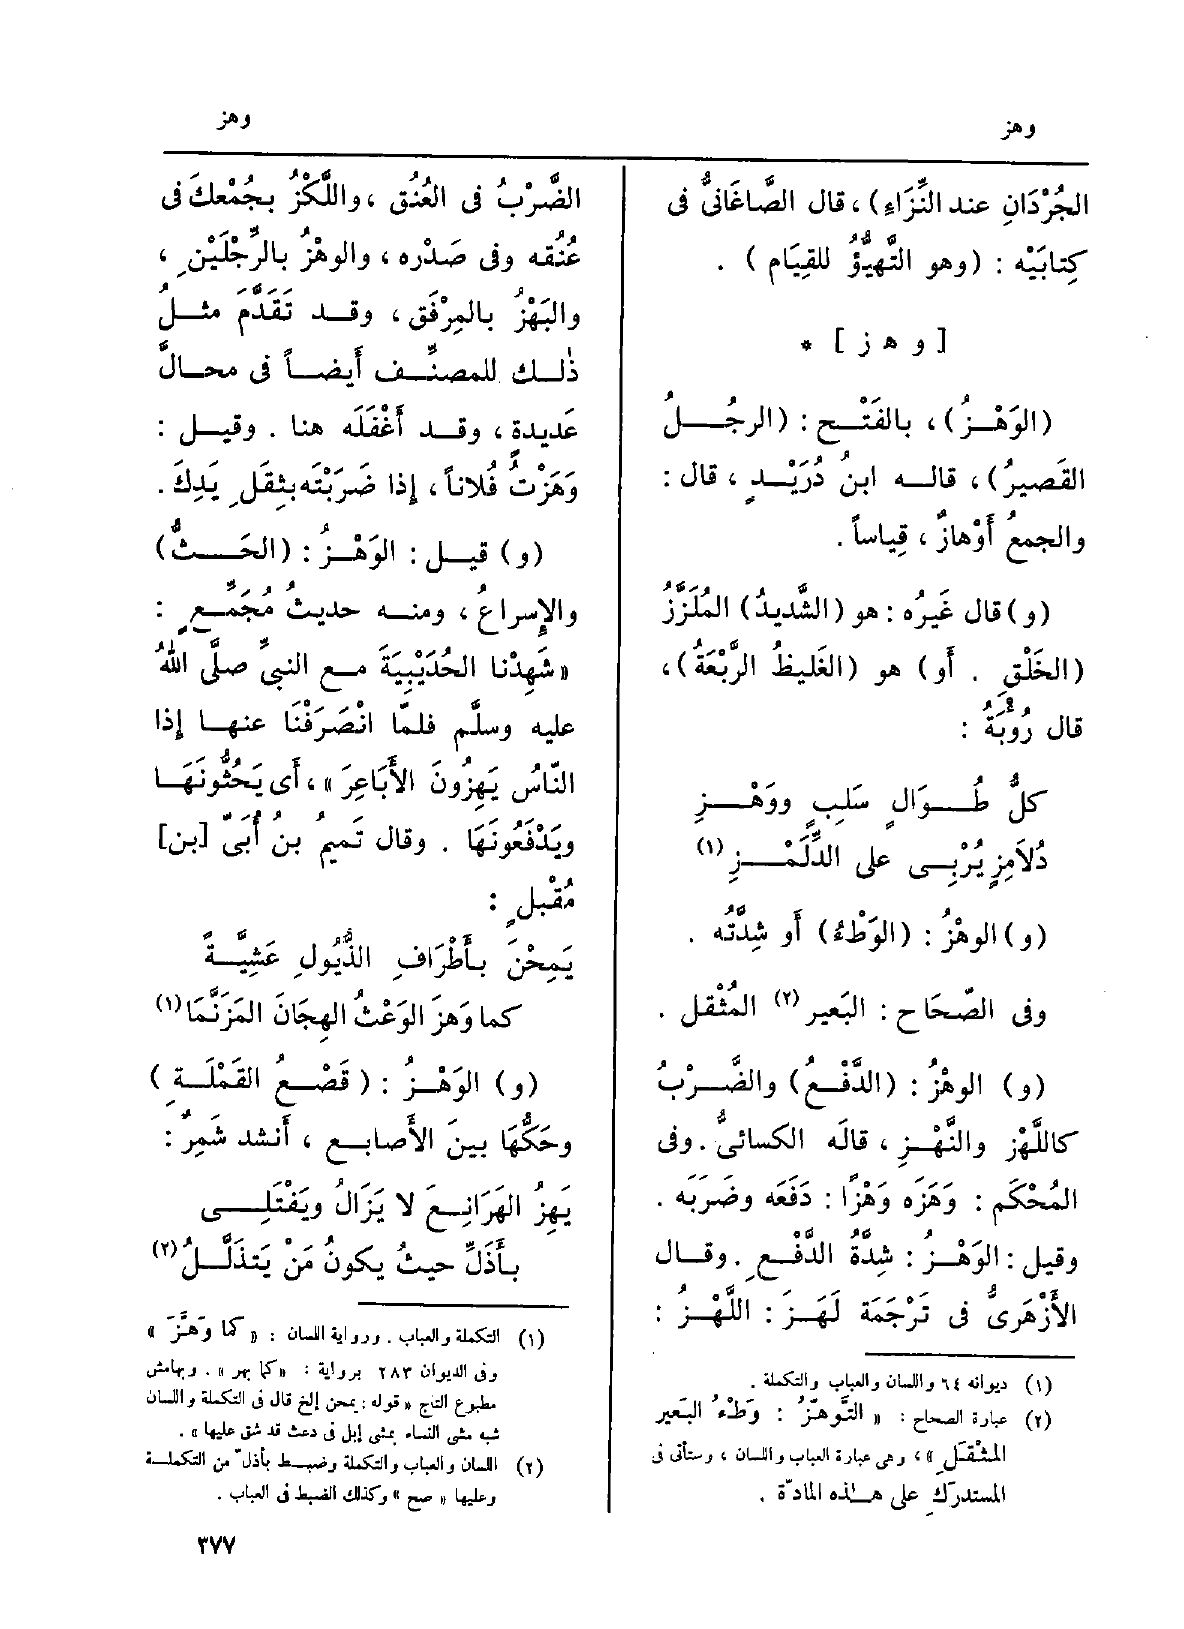 وهز
وهز
الجُرْدَانِ عند النِّزَاءِ) ، قال الصَّاغَانىُّ فى
كِتابَيْه : (وهو التَّهيُّؤُ للقِيَام) .
[ و هـ ز ] *
(الوَهْزُ) ، بالفَتْح : (الرجُلُ
القَصيرُ) ، قاله ابنُ دُرَيْدٍ ، قال :
والجمعُ أَوْهازٌ ، قِياساً .
(و) قال غَيرُه : هو (الشَّديدُ) المُلَزَّزُ
(الخَلْق . أو) هو (الغَليظُ الرَّبْعَةُ) ،
قال رُوبَةُ :
كلُّ طُوَالٍ سَلِبٍ ووَهْزِ
دُلاَمِزٍ يُرْبِى على الدِّلَمْزِ (١)
(و) الوهْزُ : (الوَطْءُ) أو شِدَّتُه .
وفى الصّحَاح : البَعير (٢) المُثْقل .
(و) الوهْزُ : (الدَّفْعُ) والضَّرْبُ
كاللَّهْز والنَّهْزِ ، قالَه الكسائىُّ . وفى
المُحْكَم : وَهَزَه وَهْزًا : دَفَعَه وضَرَبَه .
وقيل : الوَهْزُ : شِدَّةُ الدَّفْعِ . وقال
الأَزْهَرىُّ فى تَرْجَمَة لَهَزَ : اللَّهْزُ :
(١) ديوانه ٦٤ واللسان والعباب والتكملة .
(٢) عبارة الصحاح : « التَّوهّزُ : وَطْءُ البَعير
المثْقَلِ » ، وهى عبارة العباب واللسان ، وستأتى فى
المستدرَكِ على هذه المادّة .
الضَّرْبُ فى العُنُق ، واللَّكْزُ بجُمْعكَ فى
عُنُقه وفى صَدْره ، والوهْزُ بالرِّجْلَيْنِ ،
والبَهْزُ بالمِرْفَق ، وقد تَقَدَّمَ مثلُ
ذٰلك للمصنِّف أَيضاً فى محالَّ
عَديدة ، وقد أَغْفَلَه هنا . وقيل :
وَهَزْتُ فُلاناً ، إذا ضَرَبْتَه بثِقَلِ يَدِكَ .
(و) قيل : الوَهْزُ : (الحَثُّ)
والإسراعُ ، ومنه حديثُ مُجَمِّعٍ :
« شَهِدْنا الحُدَيْبِيَةَ مع النبىِّ صلَّى اللهُ
عليه وسلَّم فلمّا انْصَرَفْنَا عنها إذا
النّاسُ يَهِزُونَ الأَبَاعِرَ » ، أى يَحُثُّونَهَا
ويَدْفَعُونَهَا . وقال تَميمُ بنُ أُبَىِّ [بن]
مُقْبلٍ :
يَمِحْنَ بأَطْرَافِ الذُّيُولِ عَشِيَّةً
كما وَهَزَ الوَعْثُ الهِجَانَ المُزَنَّمَا (١)
(و) الوَهْزُ : (قَصْعُ القَمْلَةِ)
وحَكُّهَا بينَ الأَصابع ، أَنشد شَمِرٌ :
يَهِزُ الهَرَانِعَ لا يَزَالُ ويَفْتَلِى
بأَذَلِّ حيثُ يكونُ مَنْ يَتَذَلَّلُ (٢)
(١) التكملة والعباب . ورواية اللسان : « كما وَهَزَ »
وفى الديوان ٢٨٣ برواية : « كما بهر » . وبهامش
مطبوع التاج « قوله : يمحن إلخ قال فى التكملة واللسان
شبه مشى النساء بمشى إبل فى وعث قد شق عليها » .
(٢) اللسان والعباب والتكملة وضبط بأذلّ من التكملة
وعليها « صح » وكذلك الضبط فى العباب .
٣٧٧